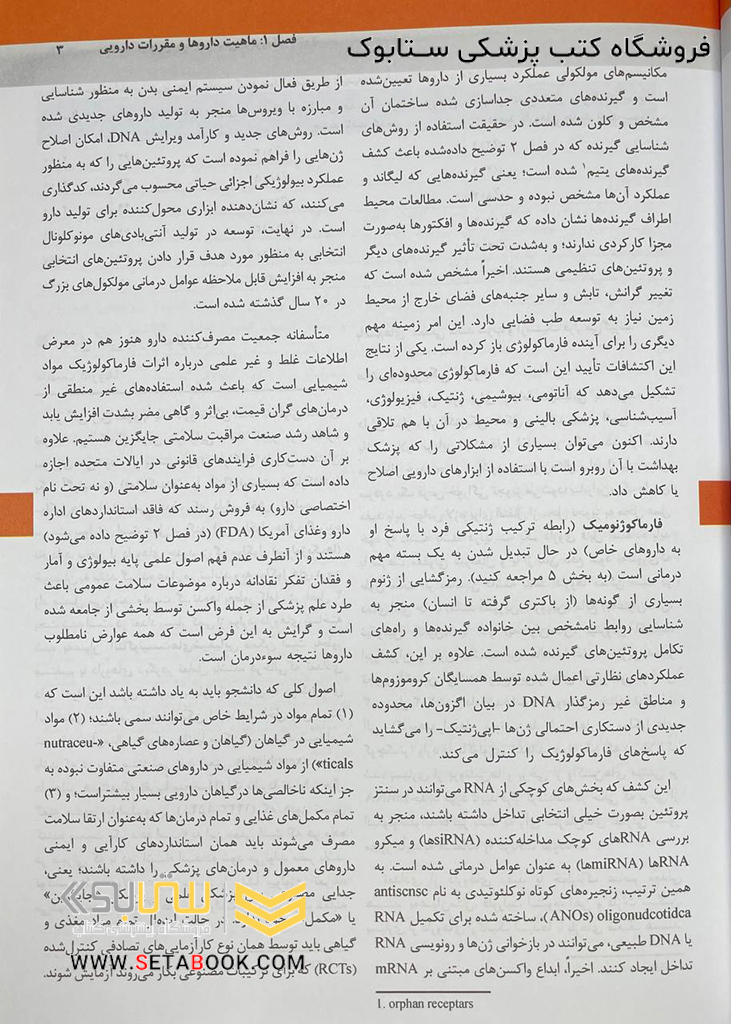 فروشگاه کتب پزشکی ســتابوک
فصل ۱: ماهیت داروها و مقررات دارویی ۳
مکانیسم‌های مولکولی عملکرد بسیاری از داروها تعیین‌شده
است و گیرنده‌های متعددی جداسازی شده ساختمان آن
مشخص و کلون شده است. در حقیقت استفاده از روش‌های
شناسایی گیرنده که در فصل ۲ توضیح داده‌شده باعث کشف
گیرنده‌های یتیم۱ شده است؛ یعنی گیرنده‌هایی که لیگاند و
عملکرد آن‌ها مشخص نبوده و حدسی است. مطالعات محیط
اطراف گیرنده‌ها نشان داده که گیرنده‌ها و افکتورها به‌صورت
مجزا کارکردی ندارند؛ و به‌شدت تحت تأثیر گیرنده‌های دیگر
و پروتئین‌های تنظیمی هستند. اخیراً مشخص شده است که
تغییر گرانش، تابش و سایر جنبه‌های فضای خارج از محیط
زمین نیاز به توسعه طب فضایی دارد. این امر زمینه مهم
دیگری را برای آینده فارماکولوژی باز کرده است. یکی از نتایج
این اکتشافات تأیید این است که فارماکولوژی محدوده‌ای را
تشکیل می‌دهد که آناتومی، بیوشیمی، ژنتیک، فیزیولوژی،
آسیب‌شناسی، پزشکی بالینی و محیط در آن با هم تلاقی
دارند. اکنون می‌توان بسیاری از مشکلاتی را که پزشک
بهداشت با آن روبرو است با استفاده از ابزارهای دارویی اصلاح
یا کاهش داد.
فارماکوژنومیک (رابطه ترکیب ژنتیکی فرد با پاسخ او
به داروهای خاص) در حال تبدیل شدن به یک بسته مهم
درمانی است (به بخش ۵ مراجعه کنید). رمزگشایی از ژنوم
بسیاری از گونه‌ها (از باکتری گرفته تا انسان) منجر به
شناسایی روابط نامشخص بین خانواده گیرنده‌ها و راه‌های
تکامل پروتئین‌های گیرنده شده است. علاوه بر این، کشف
عملکردهای نظارتی اعمال شده توسط همسایگان کروموزوم‌ها
و مناطق غیر رمزگذار DNA در بیان اگزون‌ها، محدوده
جدیدی از دستکاری احتمالی ژن‌ها -اپی‌ژنتیک- را می‌گشاید
که پاسخ‌های فارماکولوژیک را کنترل می‌کند.
این کشف که بخش‌های کوچکی از RNA می‌توانند در سنتز
پروتئین بصورت خیلی انتخابی تداخل داشته باشند، منجر به
بررسی RNAهای کوچک مداخله‌کننده (siRNAها) و میکرو
RNAها (miRNAها) به عنوان عوامل درمانی شده است. به
همین ترتیب، زنجیره‌های کوتاه نوکلئوتیدی به نام antiscnsc
oligonudcotidca (ANOs)، ساخته شده برای تکمیل RNA
یا DNA طبیعی، می‌توانند در بازخوانی ژن‌ها و رونویسی RNA
تداخل ایجاد کنند. اخیراً، ابداع واکسن‌های مبتنی بر mRNA
1. orphan receptars
از طریق فعال نمودن سیستم ایمنی بدن به منظور شناسایی
و مبارزه با ویروس‌ها منجر به تولید داروهای جدیدی شده
است. روش‌های جدید و کارآمد ویرایش DNA، امکان اصلاح
ژن‌هایی را فراهم نموده است که پروتئین‌هایی را که به منظور
عملکرد بیولوژیکی اجزائی حیاتی محسوب می‌گردند، کدگذاری
می‌کنند، که نشان‌دهنده ابزاری محول‌کننده برای تولید دارو
است. در نهایت، توسعه در تولید آنتی‌بادی‌های مونوکلونال
انتخابی به منظور مورد هدف قرار دادن پروتئین‌های انتخابی
منجر به افزایش قابل ملاحظه عوامل درمانی مولکول‌های بزرگ
در ۲۰ سال گذشته شده است.
متأسفانه جمعیت مصرف‌کننده دارو هنوز هم در معرض
اطلاعات غلط و غیر علمی درباره اثرات فارماکولوژیک مواد
شیمیایی است که باعث شده استفاده‌های غیر منطقی از
درمان‌های گران قیمت، بی‌اثر و گاهی مضر بشدت افزایش یابد
و شاهد رشد صنعت مراقبت سلامتی جایگزین هستیم. علاوه
بر آن دست‌کاری فرایندهای قانونی در ایالات متحده اجازه
داده است که بسیاری از مواد به‌عنوان سلامتی (و نه تحت نام
اختصاصی دارو) به فروش رسند که فاقد استانداردهای اداره
دارو وغذای آمریکا (FDA) (در فصل ۲ توضیح داده می‌شود)
هستند و از آنطرف عدم فهم اصول علمی پایه بیولوژی و آمار
و فقدان تفکر نقادانه درباره موضوعات سلامت عمومی باعث
طرد علم پزشکی از جمله واکسن توسط بخشی از جامعه شده
است و گرایش به این فرض است که همه عوارض نامطلوب
داروها نتیجه سوءدرمان است.
اصول کلی که دانشجو باید به یاد داشته باشد این است که
(۱) تمام مواد در شرایط خاص می‌توانند سمی باشند؛ (۲) مواد
شیمیایی در گیاهان (گیاهان و عصاره‌های گیاهی، «nutraceu-
ticals») از مواد شیمیایی در داروهای صنعتی متفاوت نبوده به
جز اینکه ناخالصی‌ها درگیاهان دارویی بسیار بیشتراست؛ و (۳)
تمام مکمل‌های غذایی و تمام درمان‌ها که به‌عنوان ارتقا سلامت
مصرف می‌شوند باید همان استانداردهای کارآیی و ایمنی
داروهای معمول و درمان‌های پزشکی را داشته باشند؛ یعنی،
جدایی پزشکی علمی
یا «مکمل در حالت تمام مواد مغذی و
گیاهی باید توسط همان نوع کارآزمایی‌های تصادفی کنترل‌شده
(RCTs) که برای ترکیبات مصنوعی بکار می‌روند آزمایش شوند.
ستابوک
فروشگاه اینترنتی کتاب
WWW.SETABOOK.COM